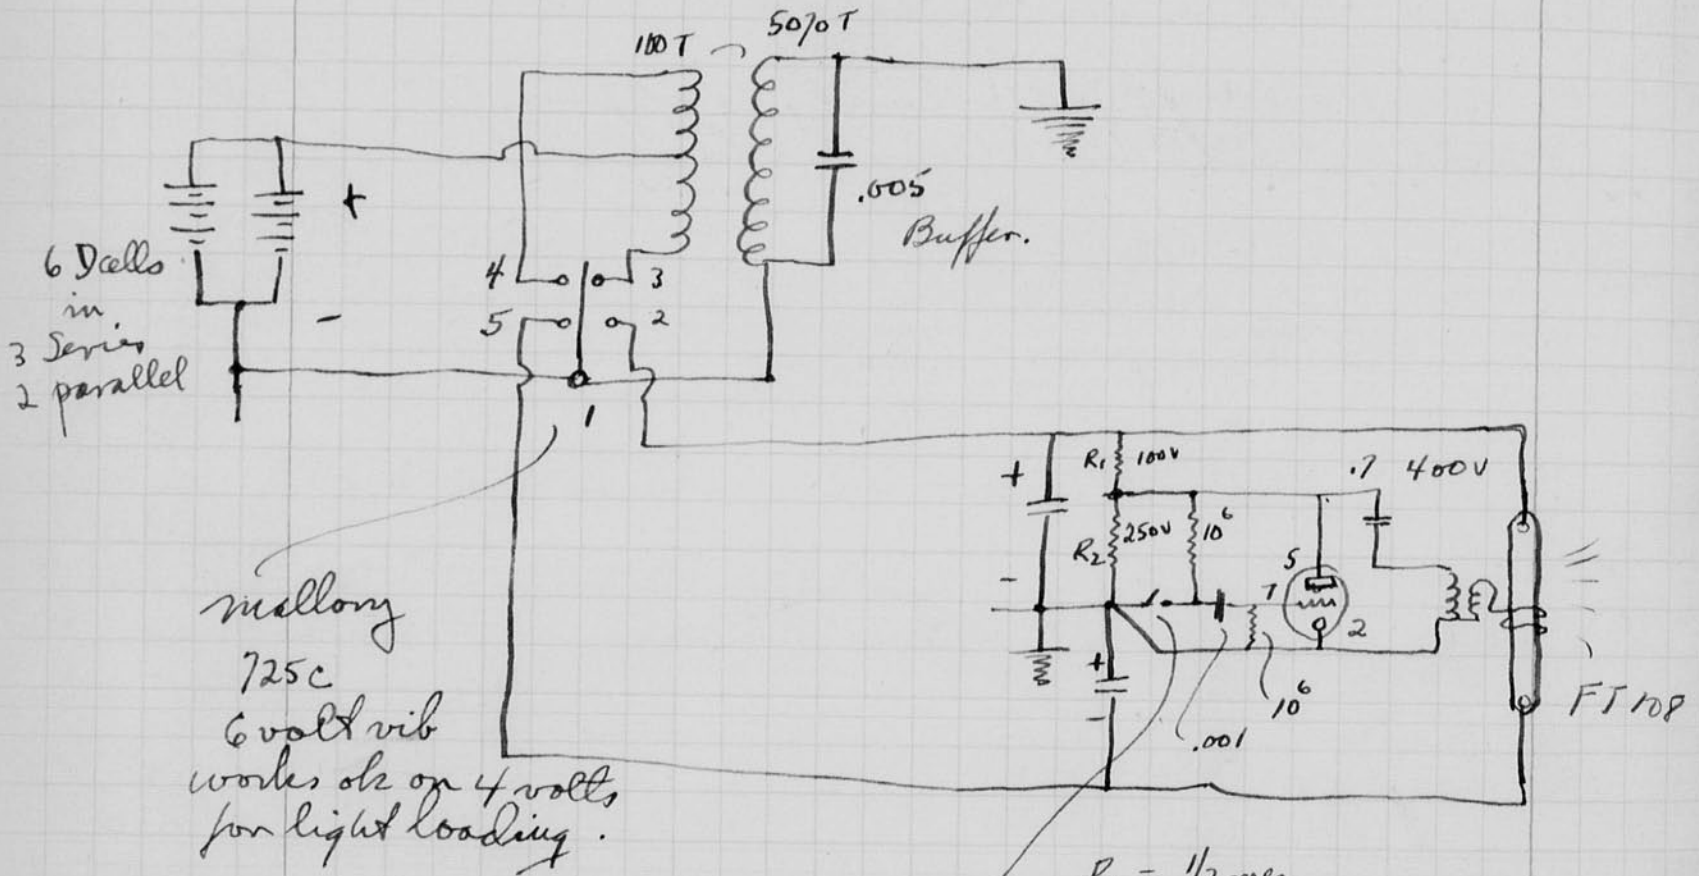 100T
5070T
+
.005
Buffer.
6 D cells
in
3 Series
2 parallel
-
4
3
5
2
1
mallory
725c
6 volt vib
works ok on 4 volts
for light loading.
+
R1 100V
.7 400V
R2 250V
10⁶
-
5
7
2
+
-
10⁶
.001